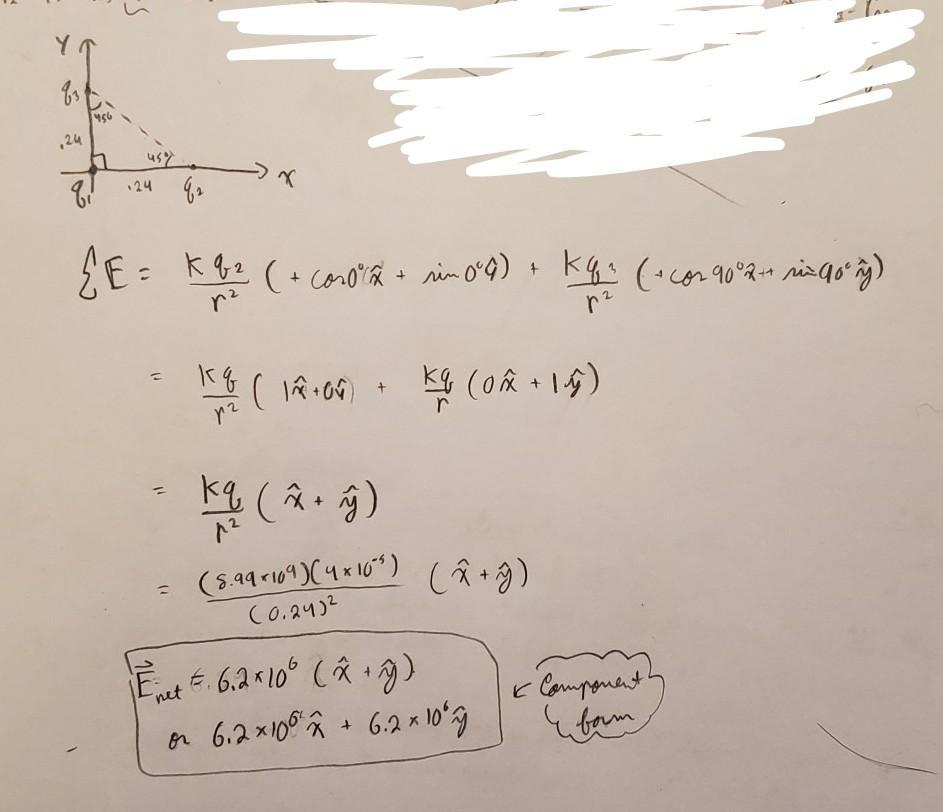 y
q₃
456
.24
45°
x
q₁ .24 q₂
ΣE = K q₂ / r² ( + cos0° x̂ + sin0° ŷ) + K q₃ / r² ( + cos 90° x̂ + + sin 90° ŷ)
= kq / r² ( 1x̂ + 0ŷ) + kq / r (0x̂ + 1ŷ)
= kq / r² ( x̂ + ŷ)
= (8.99×10⁹)(4×10⁻⁵) / (0.24)² ( x̂ + ŷ)
E⃗net = 6.2×10⁶ ( x̂ + ŷ)
or 6.2×10⁶ x̂ + 6.2×10⁶ ŷ
← Component
form